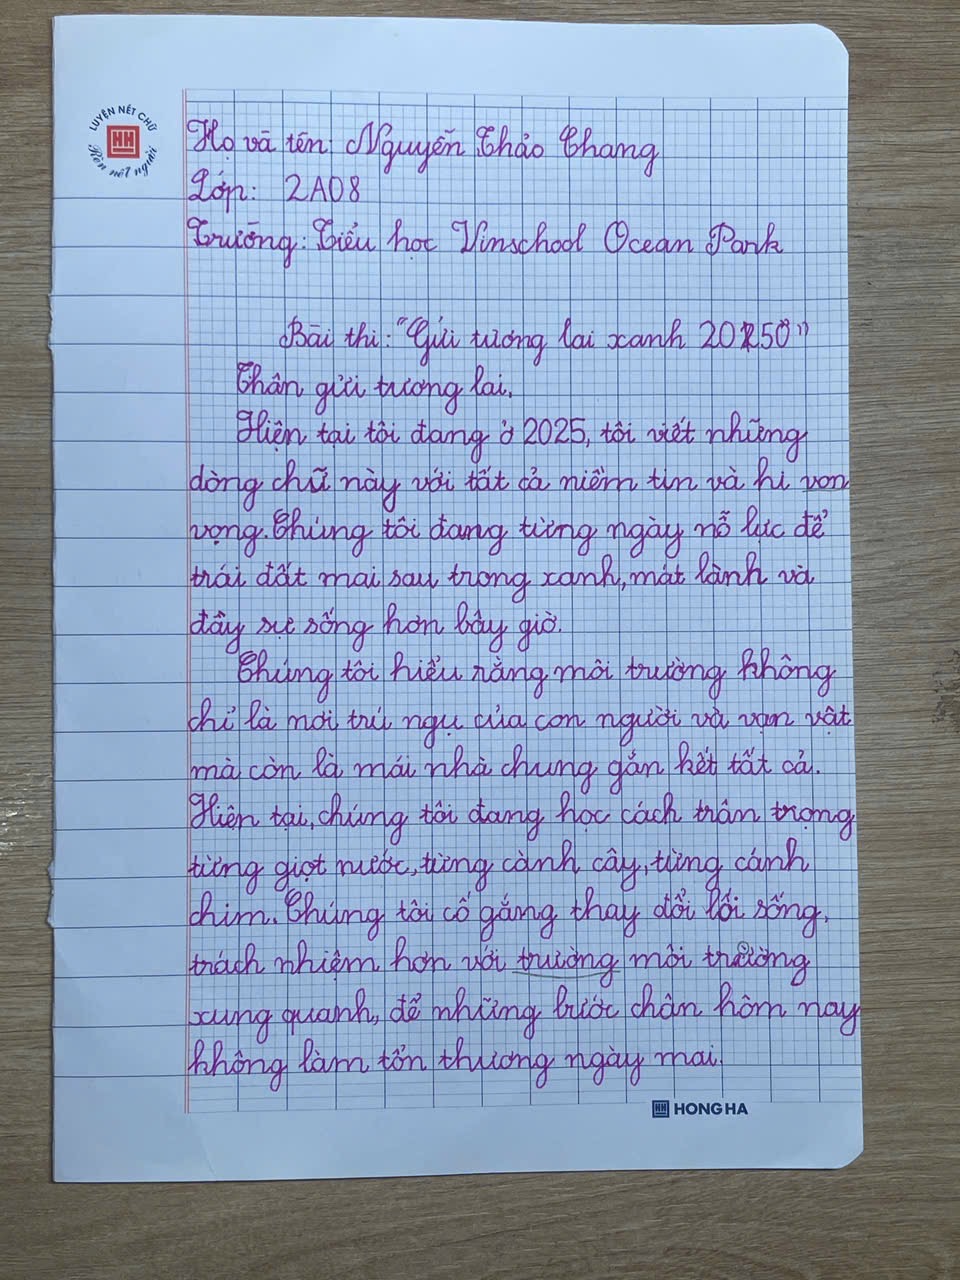 LUYỆN NÉT CHỮ
HH
Rèn nết người
Họ và tên: Nguyễn Thảo Trang
Lớp: 2A08
Trường: Tiểu học Vinschool Ocean Park
Bài thi: "Gửi tương lai xanh 2050"
Thân gửi tương lai,
Hiện tại tôi đang ở 2025, tôi viết những
dòng chữ này với tất cả niềm tin và hi vọn
vọng. Chúng tôi đang từng ngày nỗ lực để
trái đất mai sau trong xanh, mát lành và
đầy sự sống hơn bây giờ.
Chúng tôi hiểu rằng môi trường không
chỉ là nơi trú ngụ của con người và vạn vật
mà còn là mái nhà chung gắn kết tất cả.
Hiện tại, chúng tôi đang học cách trân trọng
từng giọt nước, từng cành cây, từng cánh
chim. Chúng tôi cố gắng thay đổi lối sống,
trách nhiệm hơn với trường môi trường
xung quanh, để những bước chân hôm nay
không làm tổn thương ngày mai.
HH HONG HA